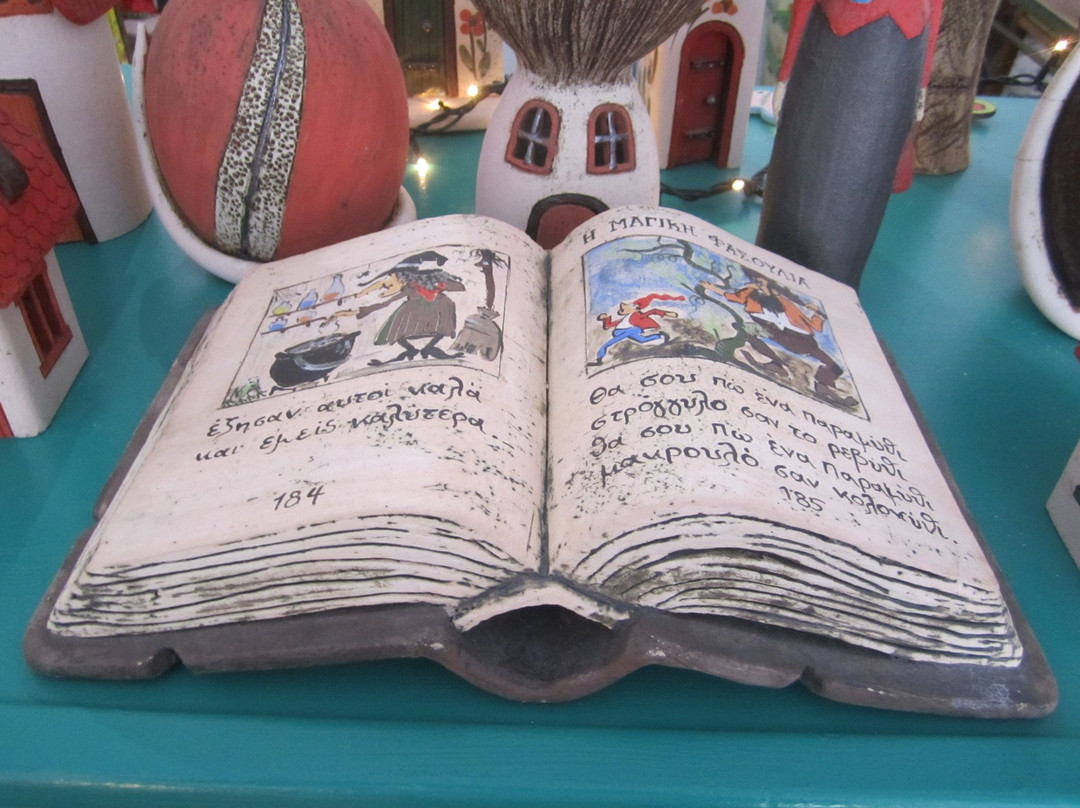 έζησαν αυτοί καλά
και εμείς καλύτερα
184
Η ΜΑΓΙΚΗ ΦΑΣΟΥΛΙΑ
θα σου πω ένα παραμύθι
στρογγυλό σαν το ρεβύθι
θα σου πω ένα παραμύθι
μακρουλό σαν κολοκύθι.
185